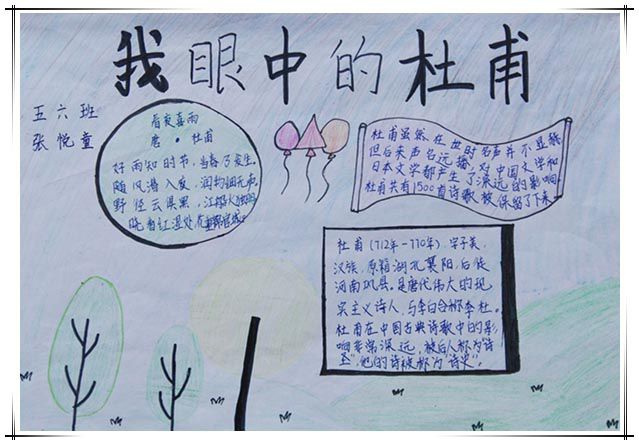 我眼中的杜甫
五六班
张悦童
春夜喜雨
唐·杜甫
好雨知时节,当春乃发生。
随风潜入夜,润物细无声。
野径云俱黑,江船火独明。
晓看红湿处,花重锦官城。
杜甫虽然在世时名声并不显赫
但后来声名远播,对中国文学和
日本文学都产生了深远的影响
杜甫共有1500首诗歌被保留了下来
杜甫(712年-770年),字子美,
汉族,原籍湖北襄阳,后徙
河南巩县。是唐代伟大的现
实主义诗人,与李白合称李杜。
杜甫在中国古典诗歌中的影
响非常深远,被后人称为“诗
圣”,他的诗被称为“诗史”。